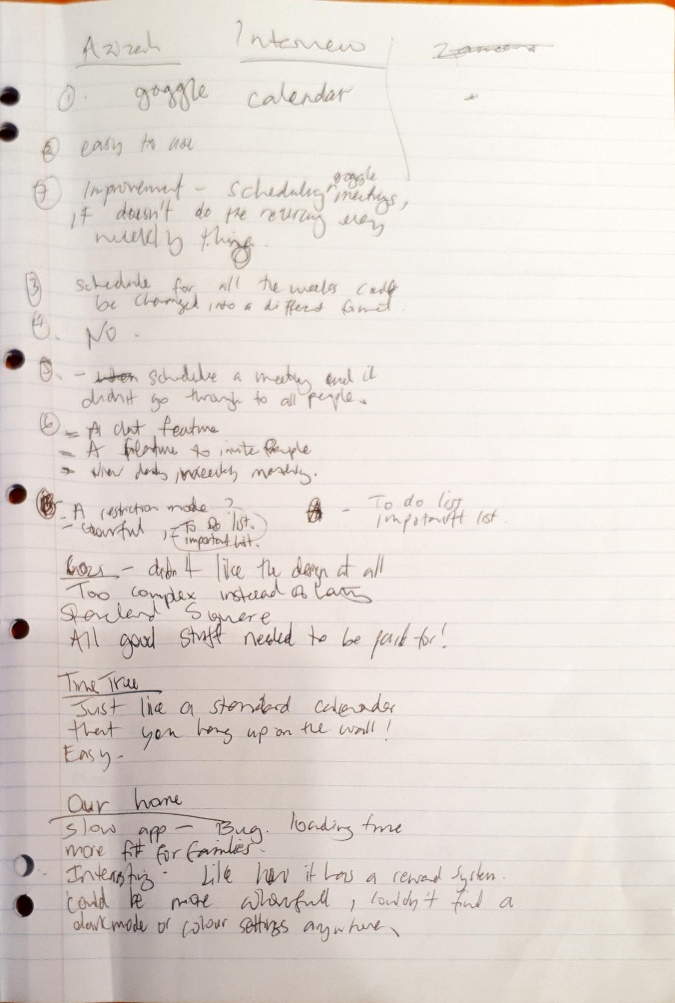 Interview
1. goggle calendar
2 easy to use
7 Improvement - Scheduling goggle meetings,
it doesn't do the every
weekly thing.
3 schedule for all the weeks could
be changed into a different format.
4. No.
5. - schedule a meeting and it
didn't go through to all people.
6 - A chat feature
- A feature to invite people
- view daily, weekly, monthly.
- A restriction mode?
- colourful, - To do list.
important list.
- To do list
important list
- didn't like the design at all
Too complex instead of
Standard Square
All good stuff needed to be paid for!
Time Tree
Just like a standard calender
that you hang up on the wall!
Easy.
Our home
Slow app - Bug. loading time
more fit for families.
- Like how it has a reward system.
Could be more colourfull, couldn't find a
dark mode or colour settings anywhere